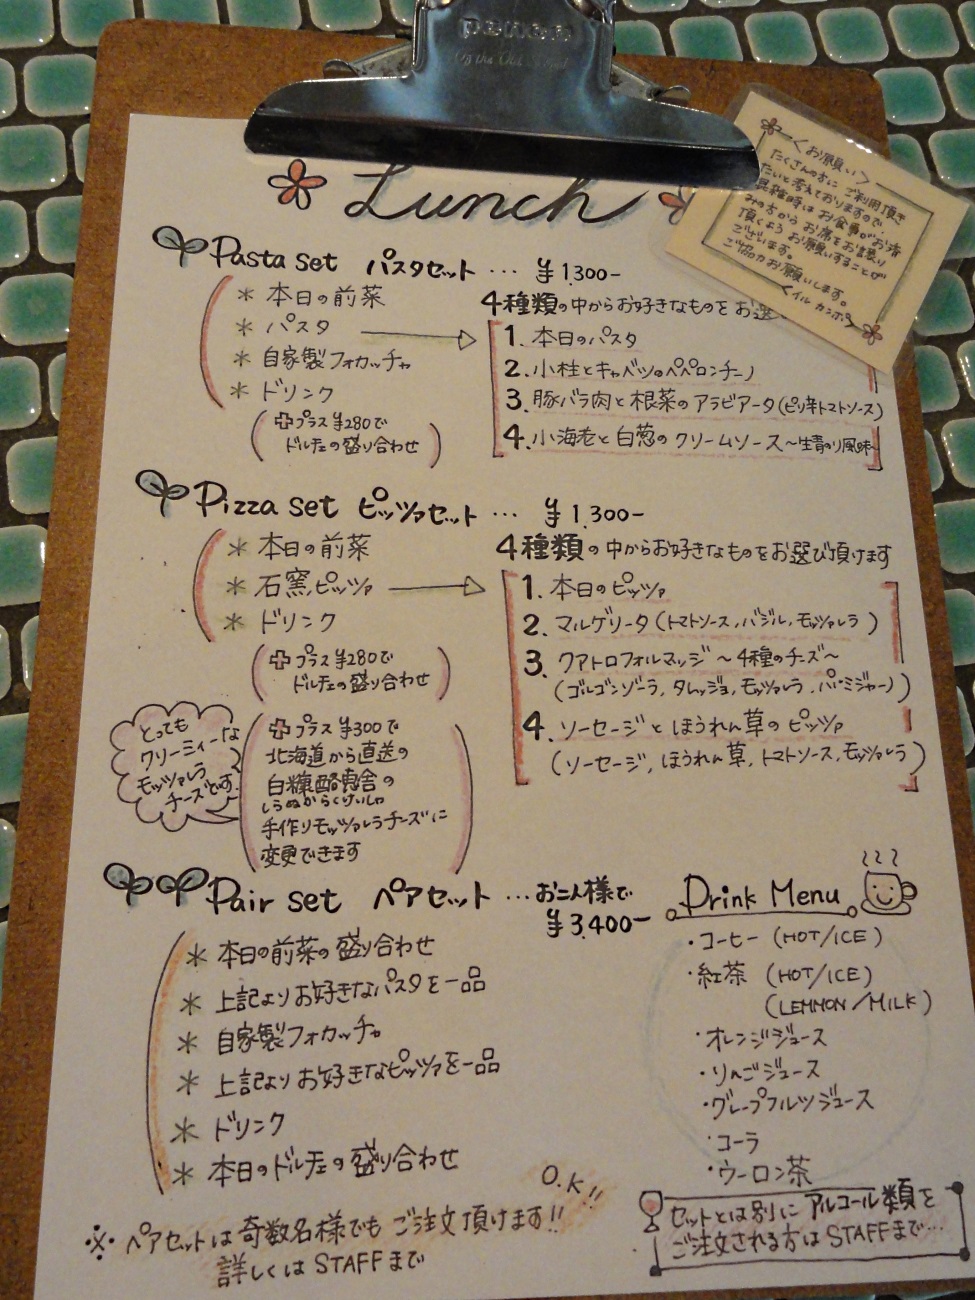 Penco
Lunch
〈お願い〉
たくさんの方に ご利用頂き
たいと考えておりますので
混雑時は お食事がお済
みの方から お席をお譲り
頂くよう お願いすることが
ございます。
ご協力お願いします。
Pasta set パスタセット … ¥1300-
* 本日の前菜
* パスタ
* 自家製フォカッチャ
* ドリンク
(+プラス ¥280で
ドルチェの盛り合わせ)
4種類の中からお好きなものを お選
1. 本日のパスタ
2. 小柱とキャベツのペペロンチーノ
3. 豚バラ肉と根菜のアラビアータ(ピリ辛トマトソース)
4. 小海老と白葱のクリームソース~生青のり風味
Pizza set ピッツァセット … ¥1,300-
* 本日の前菜
* 石窯ピッツァ
* ドリンク
(+プラス ¥280で
ドルチェの盛り合わせ)
4種類の中からお好きなものをお選び頂けます
1. 本日のピッツァ
2. マルゲリータ(トマトソース、バジル、モッツァレラ)
3. クアトロフォルマッジ ~4種のチーズ~
(ゴルゴンゾーラ、タレッジョ、モッツァレラ、パルミジャーノ)
4. ソーセージとほうれん草のピッツァ
(ソーセージ、ほうれん草、トマトソース、モッツァレラ)
とっても
クリーミィーな
モッツァレラ
チーズです。
(+プラス ¥300で
北海道から直送の
白糠酪恵舎の
しらぬからくけいしゃ
手作りモッツァレラチーズに
変更できます)
Pair set ペアセット …お二人様で
¥3,400-
* 本日の前菜の盛り合わせ
* 上記よりお好きなパスタを一品
* 自家製フォカッチャ
* 上記よりお好きなピッツァを一品
* ドリンク
* 本日のドルチェの盛り合わせ
Drink Menu
・コーヒー (HOT/ICE)
・紅茶 (HOT/ICE)
(LEMMON/MILK)
・オレンジジュース
・りんごジュース
・グレープフルツジュース
・コーラ
・ウーロン茶
O.K!!
※ペアセットは奇数名様でもご注文頂けます!!
詳しくはSTAFFまで
セットとは別にアルコール類を
ご注文される方はSTAFFまで…